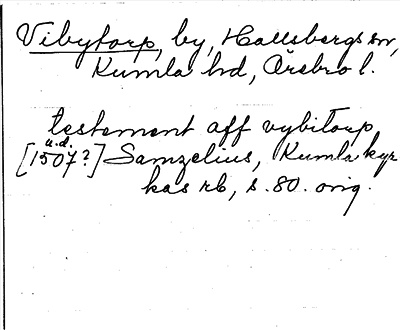 Vibytorp, by, Hallsbergs sn,
Kumla hd, Örebro l.
testament aff vybitorp
u.d.
[1507?] Samzelius, Kumla kyr
kas rb, s. 80. orig.